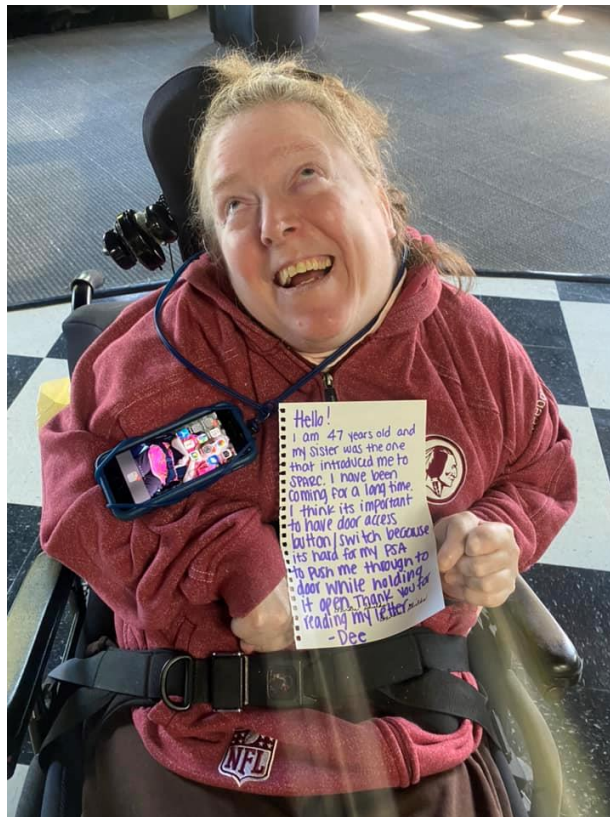 Hello!
I am 47 years old and
my sister was the one
that introduced me to
SPARC. I have been
coming for a long time.
I think its important
to have door access
button/switch because
its hard for my PSA
to push me through to
door while holding
it open. Thank you for
reading my letter.
-Dee
NFL